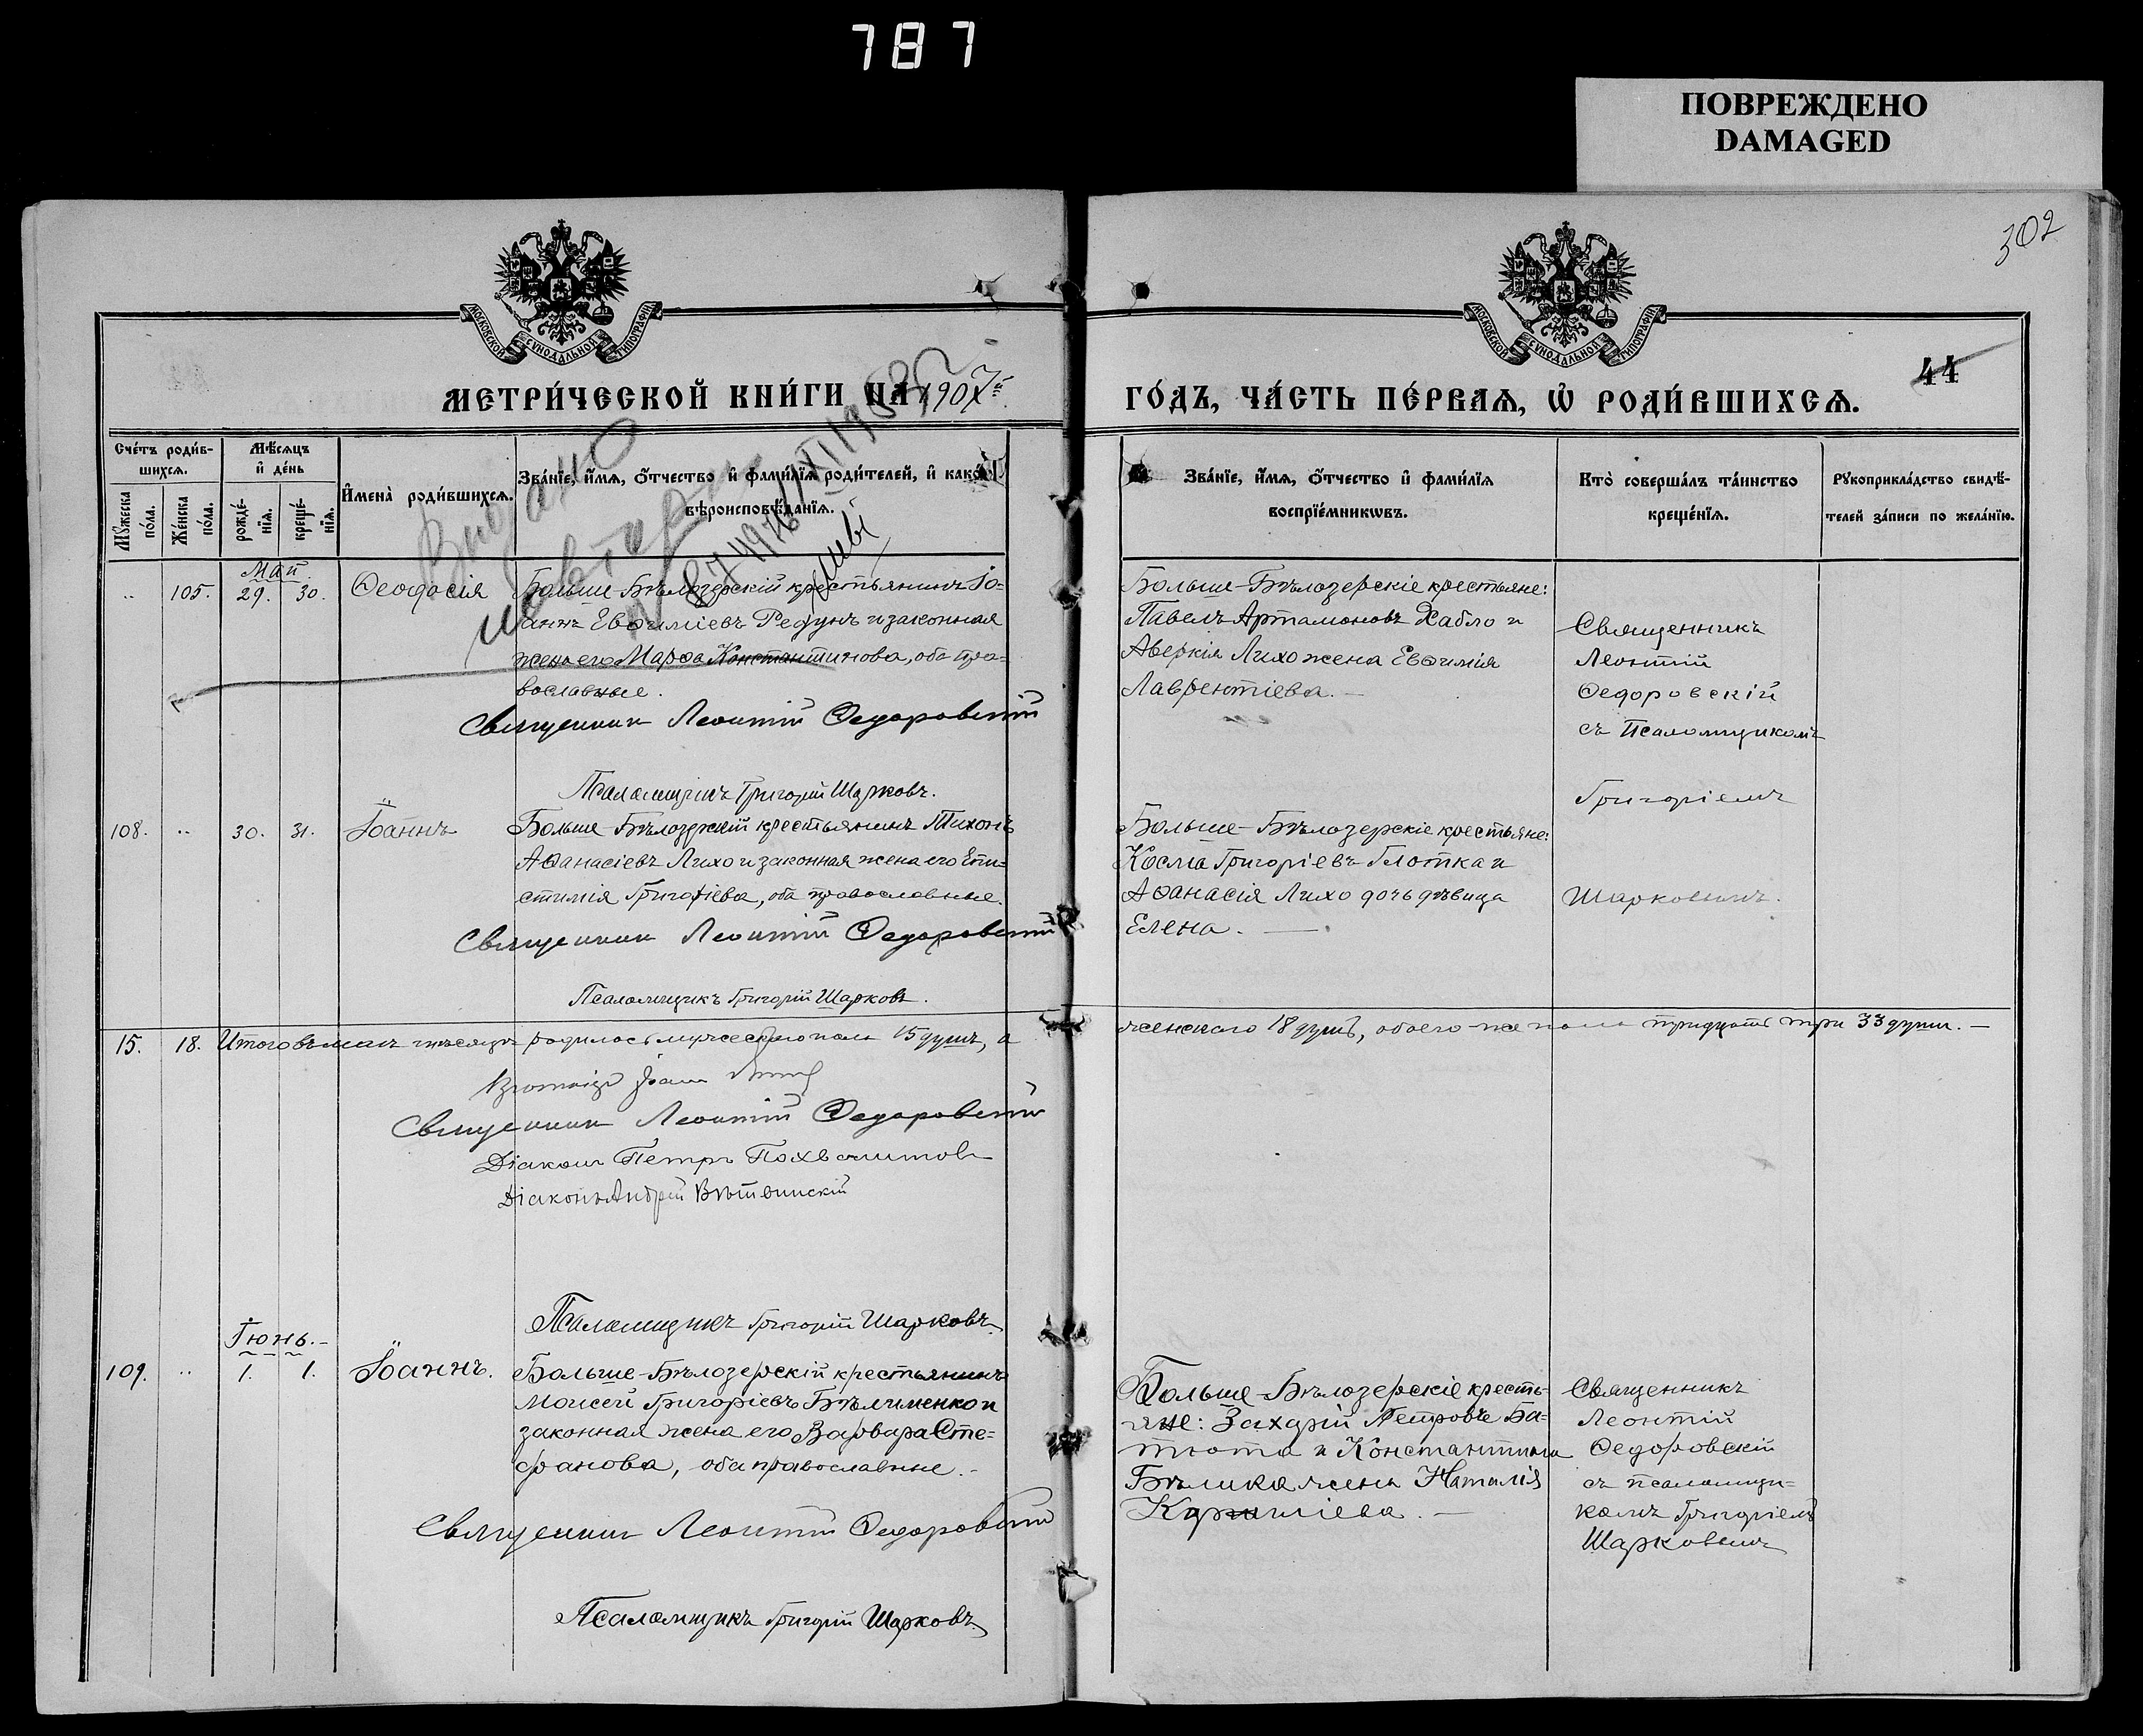 787
ПОВРЕЖДЕНО
DAMAGED
302
МОСКОВСКОЙ СѴНОДАЛЬНОЙ ТИПОГРАФІИ
МОСКОВСКОЙ СѴНОДАЛЬНОЙ ТИПОГРАФІИ
44
МЕТРИ́ЧЕСКОЙ КНИ́ГИ НА 1907й
ГО́ДЪ, ЧА́СТЬ ПЕ́РВАѦ, Ѡ҆ РОДИ́ВШИХСѦ.
Сче́тъ роди́в-
шихсѧ.
Мꙋ́жеска по́ла.
Же́нска по́ла.
Мѣ́сѧцъ
и҆ де́нь
рожде́-
нїѧ.
креще́-
нїѧ.
И҆мена̀ роди́вшихсѧ.
Зва́нїе, и҆́мѧ, ѻ҆́тчество и҆ фами́лїѧ роди́телей, и҆ како́гѡ
вѣроисповѣ́данїѧ.
Зва́нїе, и҆́мѧ, ѻ҆́тчество и҆ фами́лїѧ
воспрїе́мникѡвъ.
Кто̀ соверша́лъ та́инство
креще́нїѧ.
Рꙋкоприкла́дство свидѣ́-
телей за́писи по жела́нїю.
Видано
повторно
Май
„ 105. 29. 30. Ѳеодосія
Больше-Бѣлозерскій крестьянинъ Іо-
аннъ Евѳиміевъ Редунъ и законная
жена его Марѳа Константинова, оба пра-
вославные.
Священникъ Леонтій Ѳедоровскій
Псаломщикъ Григорій Шарковъ.
Больше-Бѣлозерскіе крестьяне:
Павелъ Артамоновъ Хабло и
Аверкія Лихо жена Евѳимія
Лаврентіева. —
Священникъ
Леонтій
Ѳедоровскій
съ Псаломщикомъ
Григоріемъ
Шарковымъ.
108. „ 30. 31. Іоаннъ
Больше-Бѣлозерскій крестьянинъ Тихонъ
Аѳанасіевъ Лихо и законная жена его Епи-
стимія Григоріева, оба православные.
Священникъ Леонтій Ѳедоровскій
Псаломщикъ Григорій Шарковъ.
Больше-Бѣлозерскіе крестьяне:
Косма Григоріевъ Глотка и
Аѳанасія Лихо дочь дѣвица
Елена. —
15. 18. Итого въ маѣ мѣсяцѣ родилось мужескаго пола 15 душъ, а
женскаго 18 душъ, обоего же пола тридцать три 33 души. —
Священникъ Леонтій Ѳедоровскій
Діаконъ Петръ Похвалитовъ
Діаконъ Андрей Вѣтвинскій
Псаломщикъ Григорій Шарковъ
Іюнь. —
109. „ 1. 1. Іоаннъ.
Больше-Бѣлозерскій крестьянинъ
Моисей Григоріевъ Бѣлименко и
законная жена его Варвара Сте-
фанова, оба православные. -
Священникъ Леонтій Ѳедоровскій
Псаломщикъ Григорій Шарковъ
Больше-Бѣлозерскіе кресть-
яне: Захарій Петровъ Ба-
тюта и Константина
Бѣлика жена Наталія
Кириліева. —
Священникъ
Леонтій
Ѳедоровскій
съ псаломщи-
комъ Григоріемъ
Шарковымъ